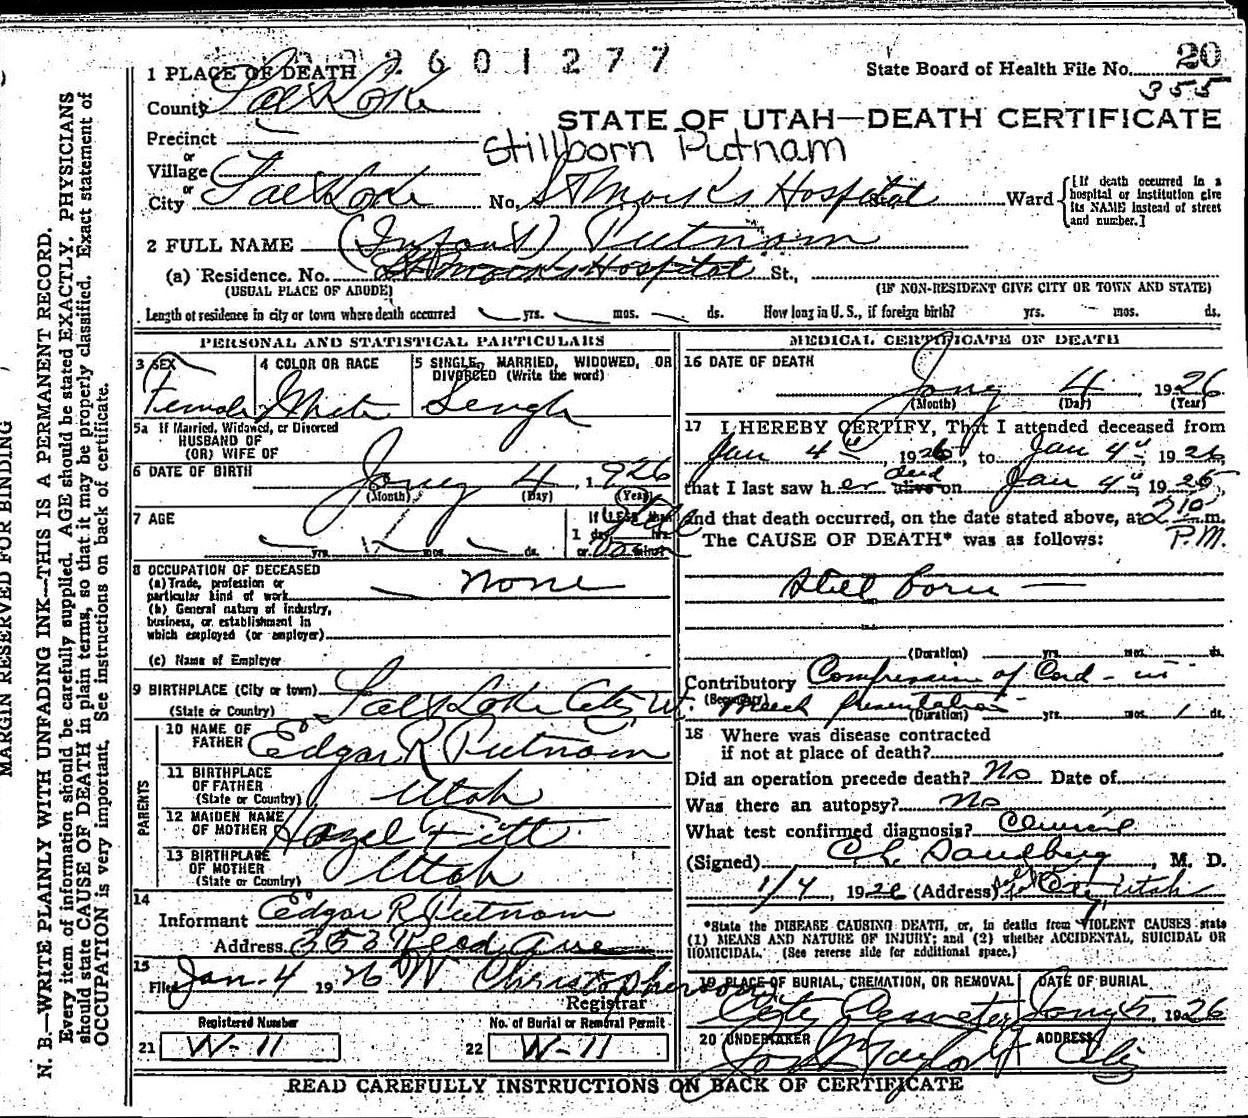 2601277
State Board of Health File No. 20
355
1 PLACE OF DEATH
County Salt Lake
STATE OF UTAH—DEATH CERTIFICATE
Precinct
or
Stillborn Putnam
Village
or
City Salt Lake No. St Mark's Hospital St. Ward [If death occurred in a hospital or institution give its NAME instead of street and number.]
2 FULL NAME (Infant) Putnam
(a) Residence. No. St Mark's Hospital St.,
(USUAL PLACE OF ABODE) (IF NON-RESIDENT GIVE CITY OR TOWN AND STATE)
Length of residence in city or town where death occurred yrs. mos. ds. How long in U. S., if foreign birth? yrs. mos. ds.
PERSONAL AND STATISTICAL PARTICULARS
3 SEX 4 COLOR OR RACE 5 SINGLE, MARRIED, WIDOWED, OR
DIVORCED (Write the word)
Female White Single
5a If Married, Widowed, or Divorced
HUSBAND OF
(OR) WIFE OF
6 DATE OF BIRTH Jany 4, 1926
(Month) (Day) (Year)
7 AGE If LESS than
1 day hrs.
yrs. mos. ds. or min.
8 OCCUPATION OF DECEASED
(a) Trade, profession or
particular kind of work none
(b) General nature of industry,
business, or establishment in
which employed (or employer)
(c) Name of Employer
9 BIRTHPLACE (City or town) Salt Lake City U.
(State or Country)
PARENTS
10 NAME OF
FATHER Edgar R Putnam
11 BIRTHPLACE
OF FATHER
(State or Country) Utah
12 MAIDEN NAME
OF MOTHER Hazel Fitt
13 BIRTHPLACE
OF MOTHER
(State or Country) Utah
14
Informant Edgar R Putnam
Address. 353 Ave
15
Filed Jan. 4 1926 W. Christopherson
Registrar
Registered Number No. of Burial or Removal Permit
21 W-11 22 W-11
MEDICAL CERTIFICATE OF DEATH
16 DATE OF DEATH
Jany 4 1926
(Month) (Day) (Year)
17 I HEREBY CERTIFY, That I attended deceased from
Jan 4", 1926, to Jan 4", 1926
that I last saw her alive dead on Jan 4", 1926,
and that death occurred, on the date stated above, at 2 10 m.
P.M.
The CAUSE OF DEATH* was as follows:
Still born
(Duration) yrs. mos. ds.
Contributory Compression of Cord - in
(Secondary) Breech presentation
(Duration) yrs. mos. 1 ds.
18 Where was disease contracted
if not at place of death?
Did an operation precede death? No Date of
Was there an autopsy? No
What test confirmed diagnosis? Clinical
(Signed) C L Sandberg, M. D.
1/4, 1926 (Address) City Utah
*State the DISEASE CAUSING DEATH, or, in deaths from VIOLENT CAUSES state
(1) MEANS AND NATURE OF INJURY; and (2) whether ACCIDENTAL, SUICIDAL OR
HOMICIDAL. (See reverse side for additional space.)
19 PLACE OF BURIAL, CREMATION, OR REMOVAL DATE OF BURIAL
City Cemetery Jany 5, 1926
20 UNDERTAKER ADDRESS
Taylor City
READ CAREFULLY INSTRUCTIONS ON BACK OF CERTIFICATE
MARGIN RESERVED FOR BINDING
N. B.—WRITE PLAINLY WITH UNFADING INK—THIS IS A PERMANENT RECORD.
Every item of information should be carefully supplied. AGE should be stated EXACTLY. PHYSICIANS
should state CAUSE OF DEATH in plain terms, so that it may be properly classified. Exact statement of
OCCUPATION is very important. See instructions on back of certificate.